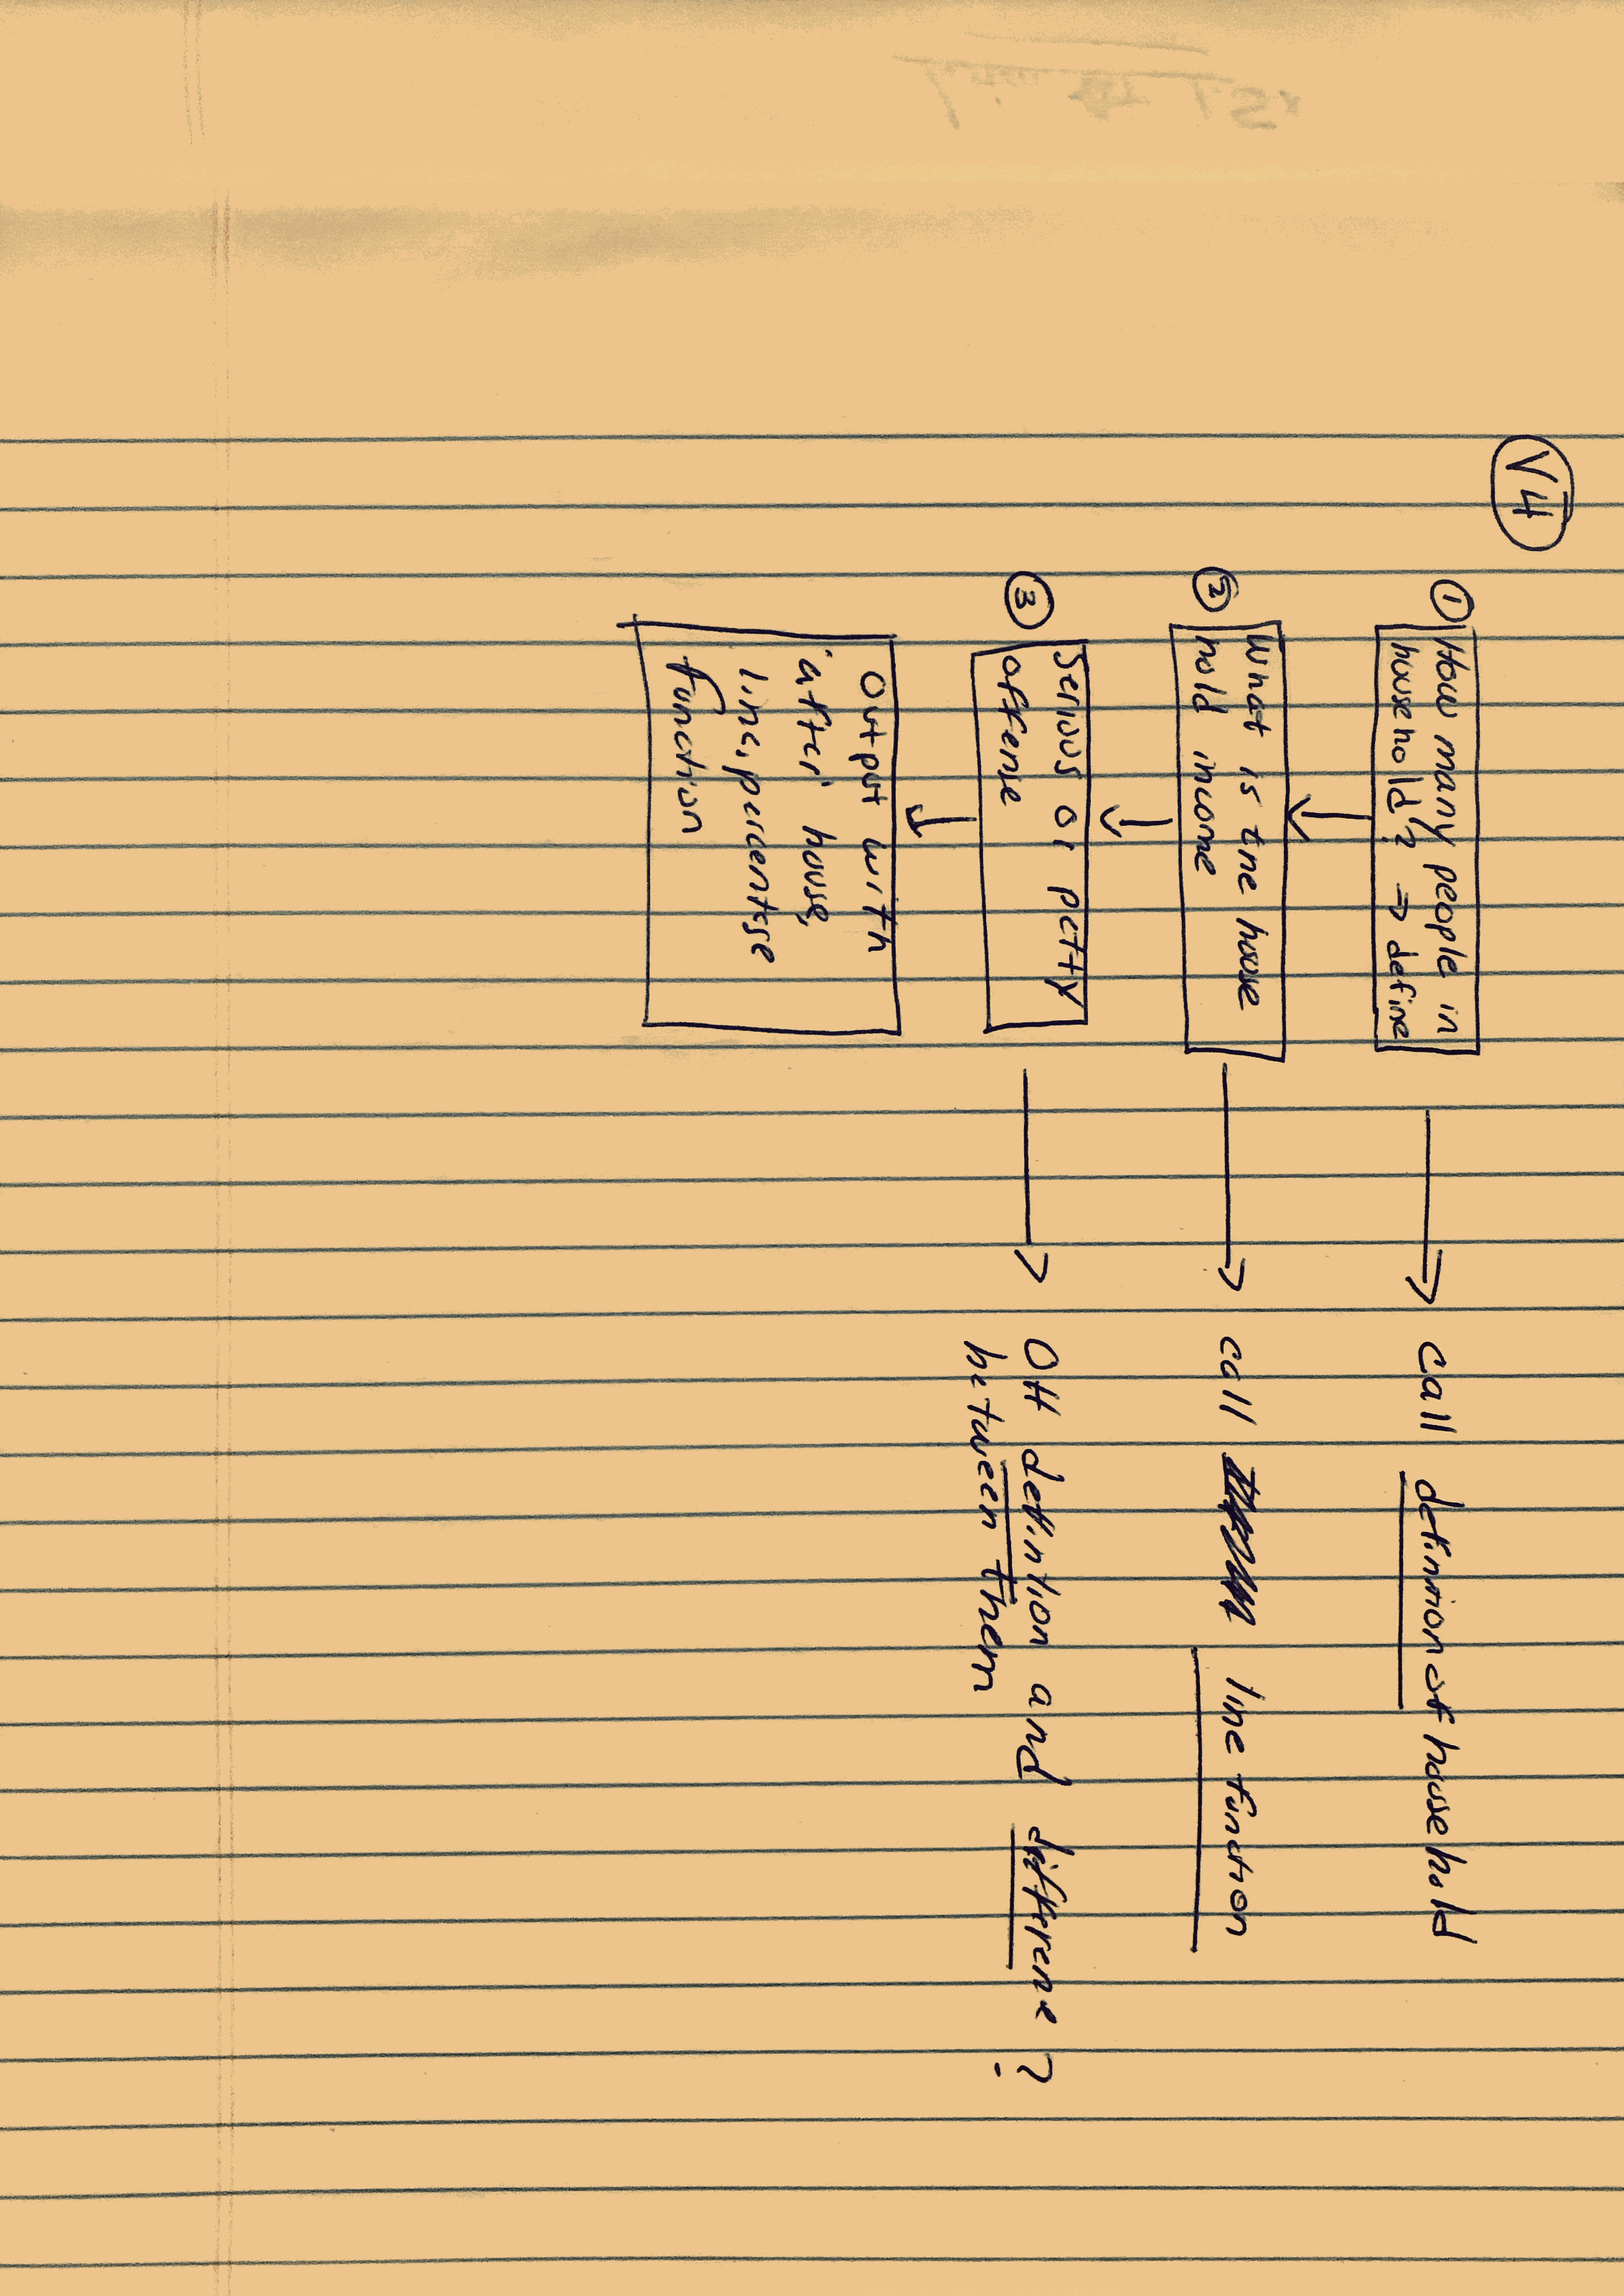 V4
① How many people in
household? ⇒ define
→ call definition of household
② What is the house
hold income
→ call line function
③ Serious or petty
offense
→ Off defintion and differene?
between them
Output with
after house,
line, percentge
function